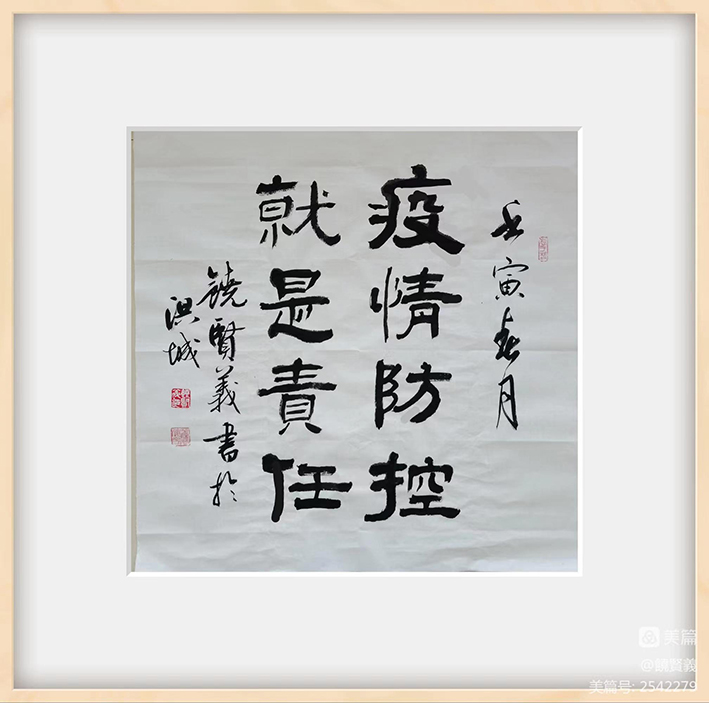 壬寅春月
疫情防控
就是責任
饒賢義書於
洪城
美篇
@饒賢義
美篇号: 2542279